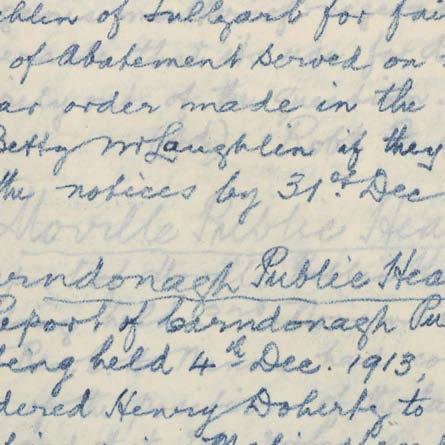 of Tullyart for
of Abatement served on
order made in the
Betty McLaughlin if they
the notices by 31st Dec
Moville Public Hea
arndonagh Public Hea
Report of Carndonagh Pu
being held 4th Dec. 1913,
dered Henry Doherty to